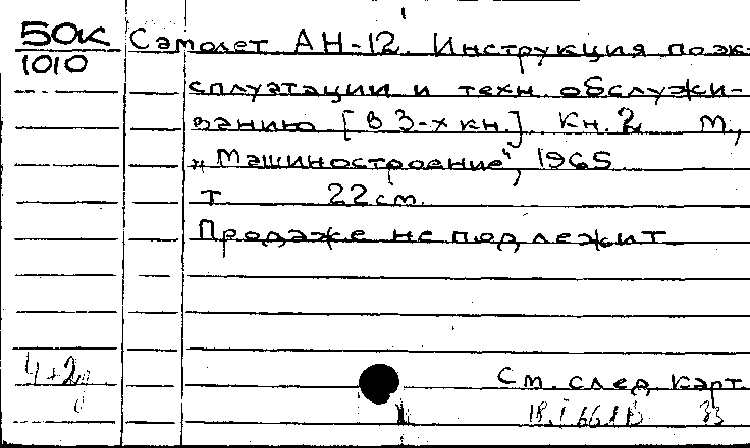 50к Самолет АН-12. Инструкция по эк-
1010
сплуатации и техн. обслужи-
ванию [в 3-х кн.]. Кн. 2 М.,
„Машиностроение“, 1965
т 22 см.
Продаже не подлежит
4+2д
См. след. карт
18.I 66 33